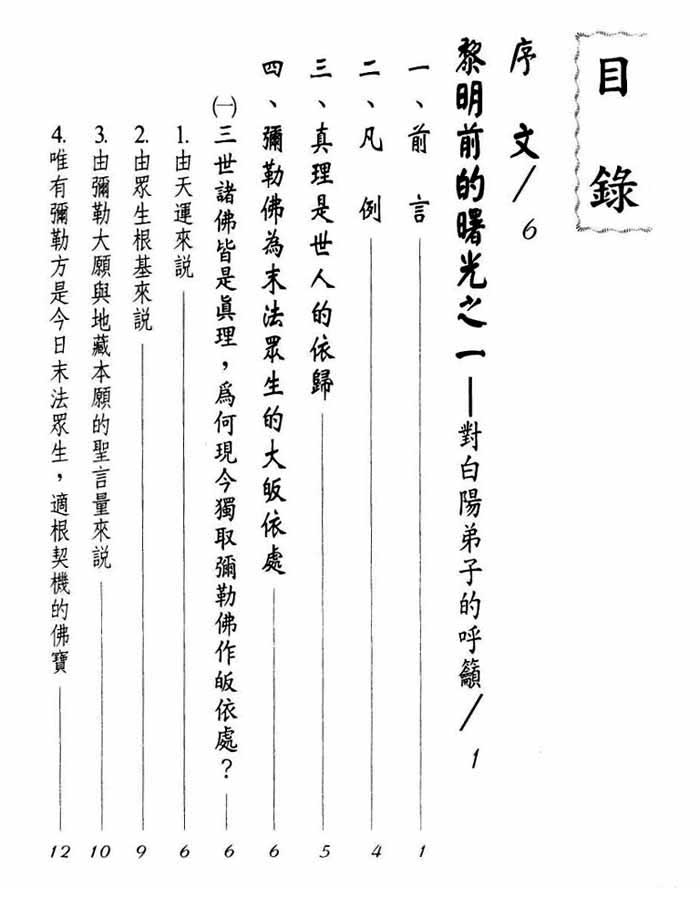 目錄
序文/6
黎明前的曙光之一——對白陽弟子的呼籲/1
一、前言 1
二、凡例 4
三、真理是世人的依歸 5
四、彌勒佛為末法眾生的大皈依處 6
㈠三世諸佛皆是眞理，爲何現今獨取彌勒佛作皈依處？ 6
1.由天運來説 6
2.由眾生根基來説 9
3.由彌勒大願與地藏本願的聖言量來説 10
4.唯有彌勒方是今日末法眾生，適根契機的佛寶 12